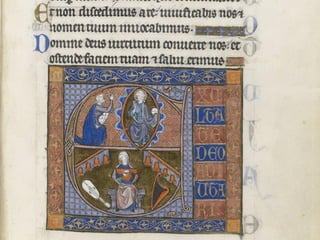 Et non discedimus a te. vivificabis nos et
nomen tuum invocabimus.
Domine deus virtutum converte nos. et
ostende faciem tuam et salvi erimus
EXU
LTA
TE
DEO